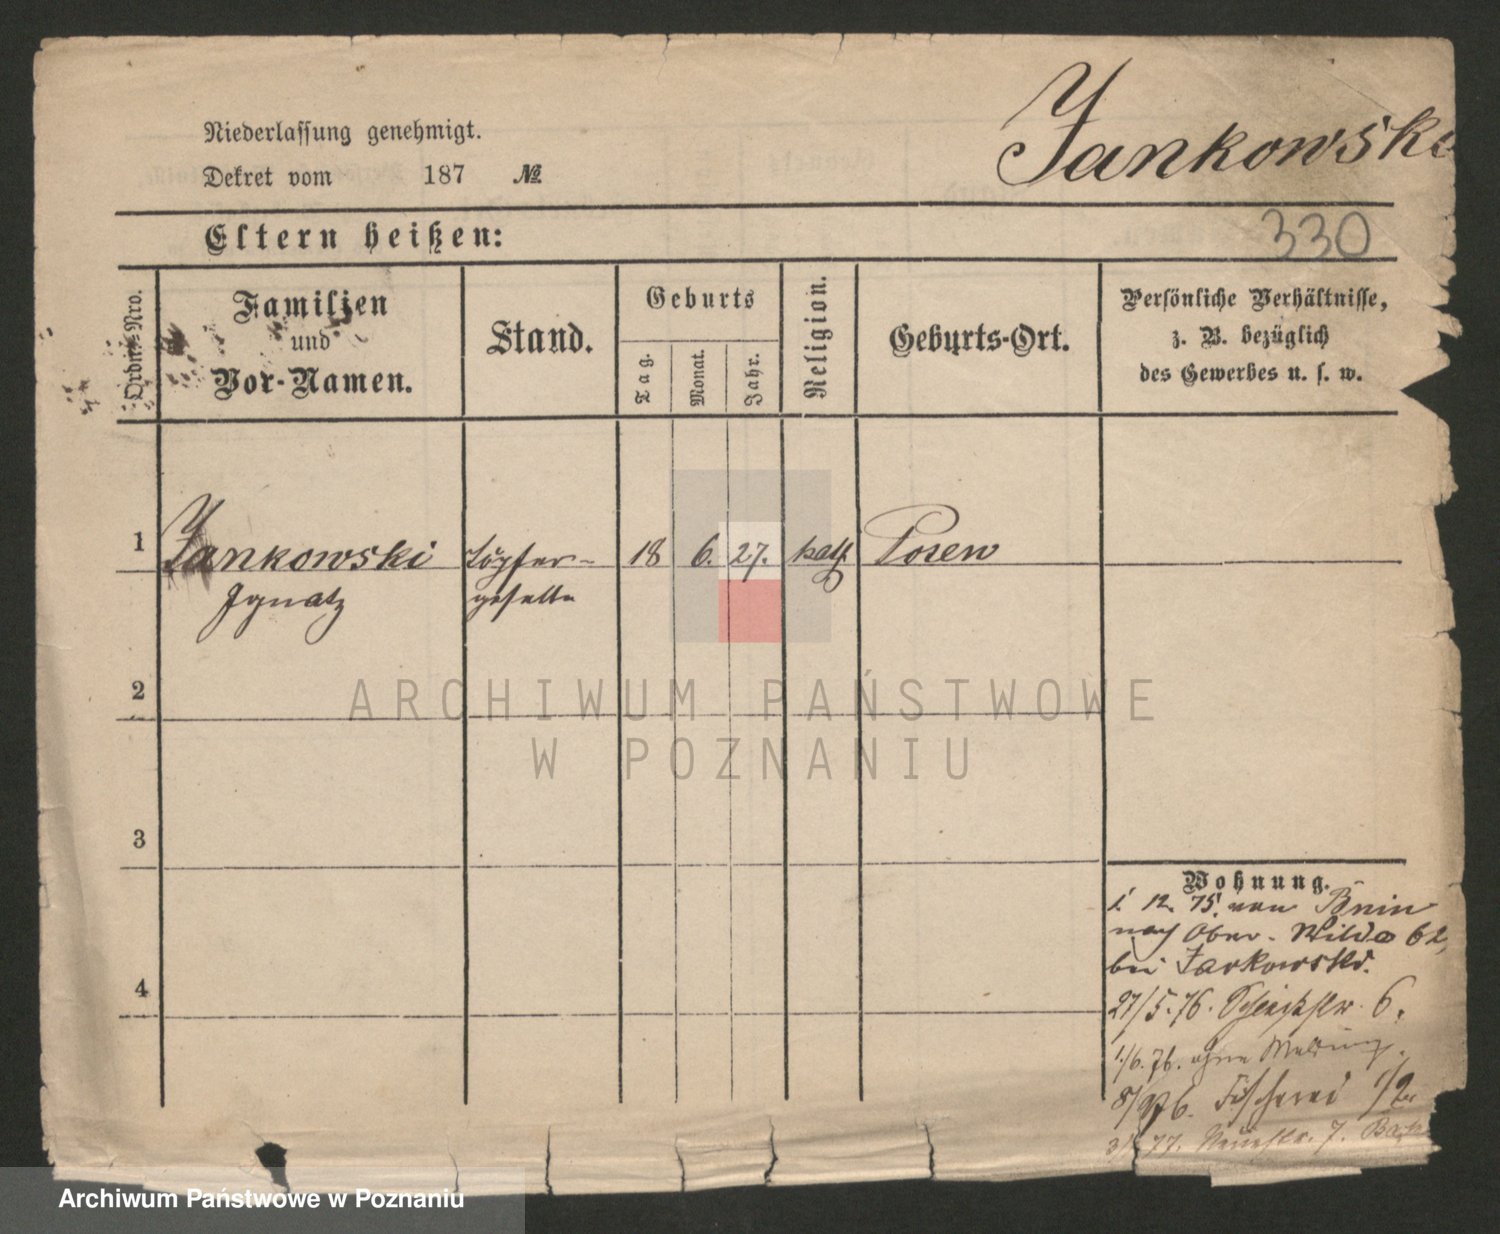 Jankowski
Niederlassung genehmigt.
Dekret vom 187 №
Eltern heißen:
330
Ordn. Nro.
Familien
und
Vor-Namen.
Stand.
Geburts
Tag.
Monat.
Jahr.
Religion.
Geburts-Ort.
Persönliche Verhältnisse,
z. B. bezüglich
des Gewerbes u. s. w.
1 Jankowski Töpfer- 18 6. 27. kath. Posen
Ignatz geselle
2
ARCHIWUM PAŃSTWOWE
W POZNANIU
3
4
Wohnung.
1. 12. 75. von Bnin
nach Ober-Wilda 62,
bei Jankowski.
27/5. 76. 6.
1/6. 76. ohne Meldung.
Fischerei 1/2
77. 7.
Archiwum Państwowe w Poznaniu